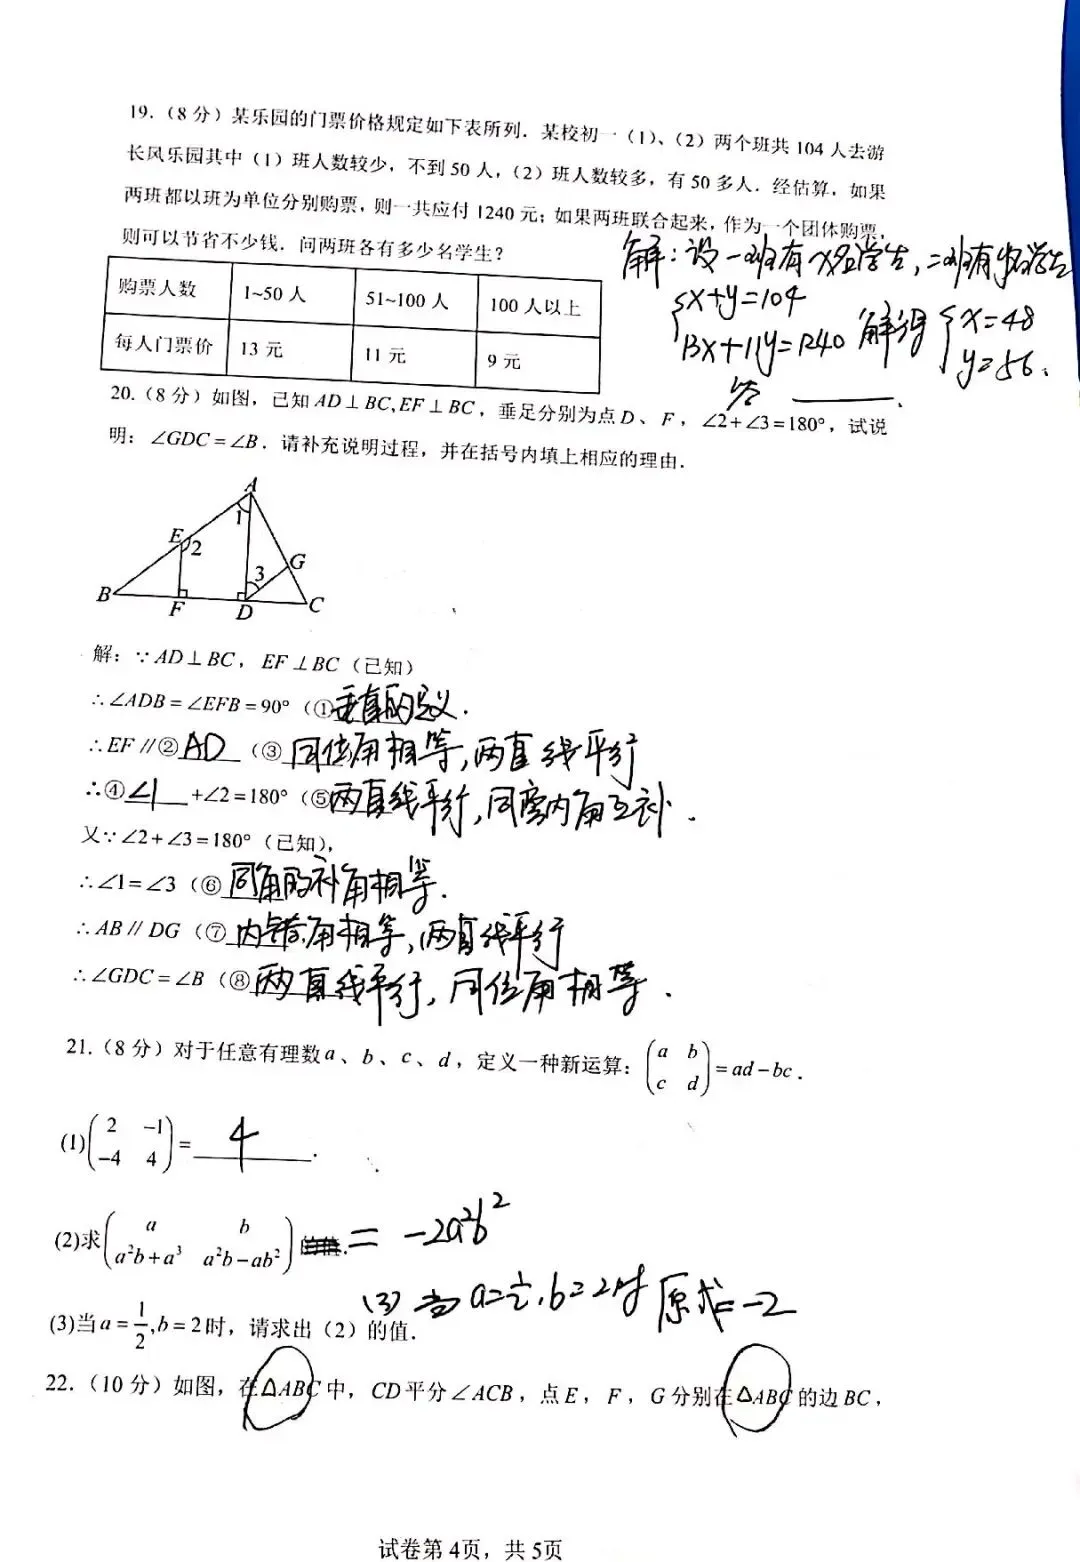 19.（8分）某乐园的门票价格规定如下表所列．某校初一（1）、（2）两个班共104人去游
长风乐园其中（1）班人数较少，不到50人，（2）班人数较多，有50多人．经估算，如果
两班都以班为单位分别购票，则一共应付1240元；如果两班联合起来，作为一个团体购票，
则可以节省不少钱．问两班各有多少名学生？
解：设一班有x名学生，二班有y名学生
{x+y=104
13x+11y=1240 解得{x=48
y=56.
答
购票人数 1~50人 51~100人 100人以上
每人门票价 13元 11元 9元
20.（8分）如图，已知AD⊥BC,EF⊥BC，垂足分别为点D、F，∠2+∠3=180°，试说
明：∠GDC=∠B．请补充说明过程，并在括号内填上相应的理由．
A
1
E
2
G
3
B
F
D
C
解：∵AD⊥BC，EF⊥BC（已知）
∴∠ADB=∠EFB=90°（①垂直的定义．
∴EF//②AD（③同位角相等，两直线平行
∴④∠1+∠2=180°（⑤两直线平行，同旁内角互补．
又∵∠2+∠3=180°（已知），
∴∠1=∠3（⑥同角的补角相等．
∴AB//DG（⑦内错角相等，两直线平行
∴∠GDC=∠B（⑧两直线平行，同位角相等．
21.（8分）对于任意有理数a、b、c、d，定义一种新运算：(a b
c d)=ad−bc．
(1)(2 −1
−4 4)=4．
(2)求(a b
a²b+a³ a²b−ab²)=−2a²b²
(3)当a=1/2,b=2时原式=−2
(3)当a=1/2,b=2时，请求出（2）的值．
22.（10分）如图，在△ABC中，CD平分∠ACB，点E，F，G分别在△ABC的边BC，
试卷第4页，共5页